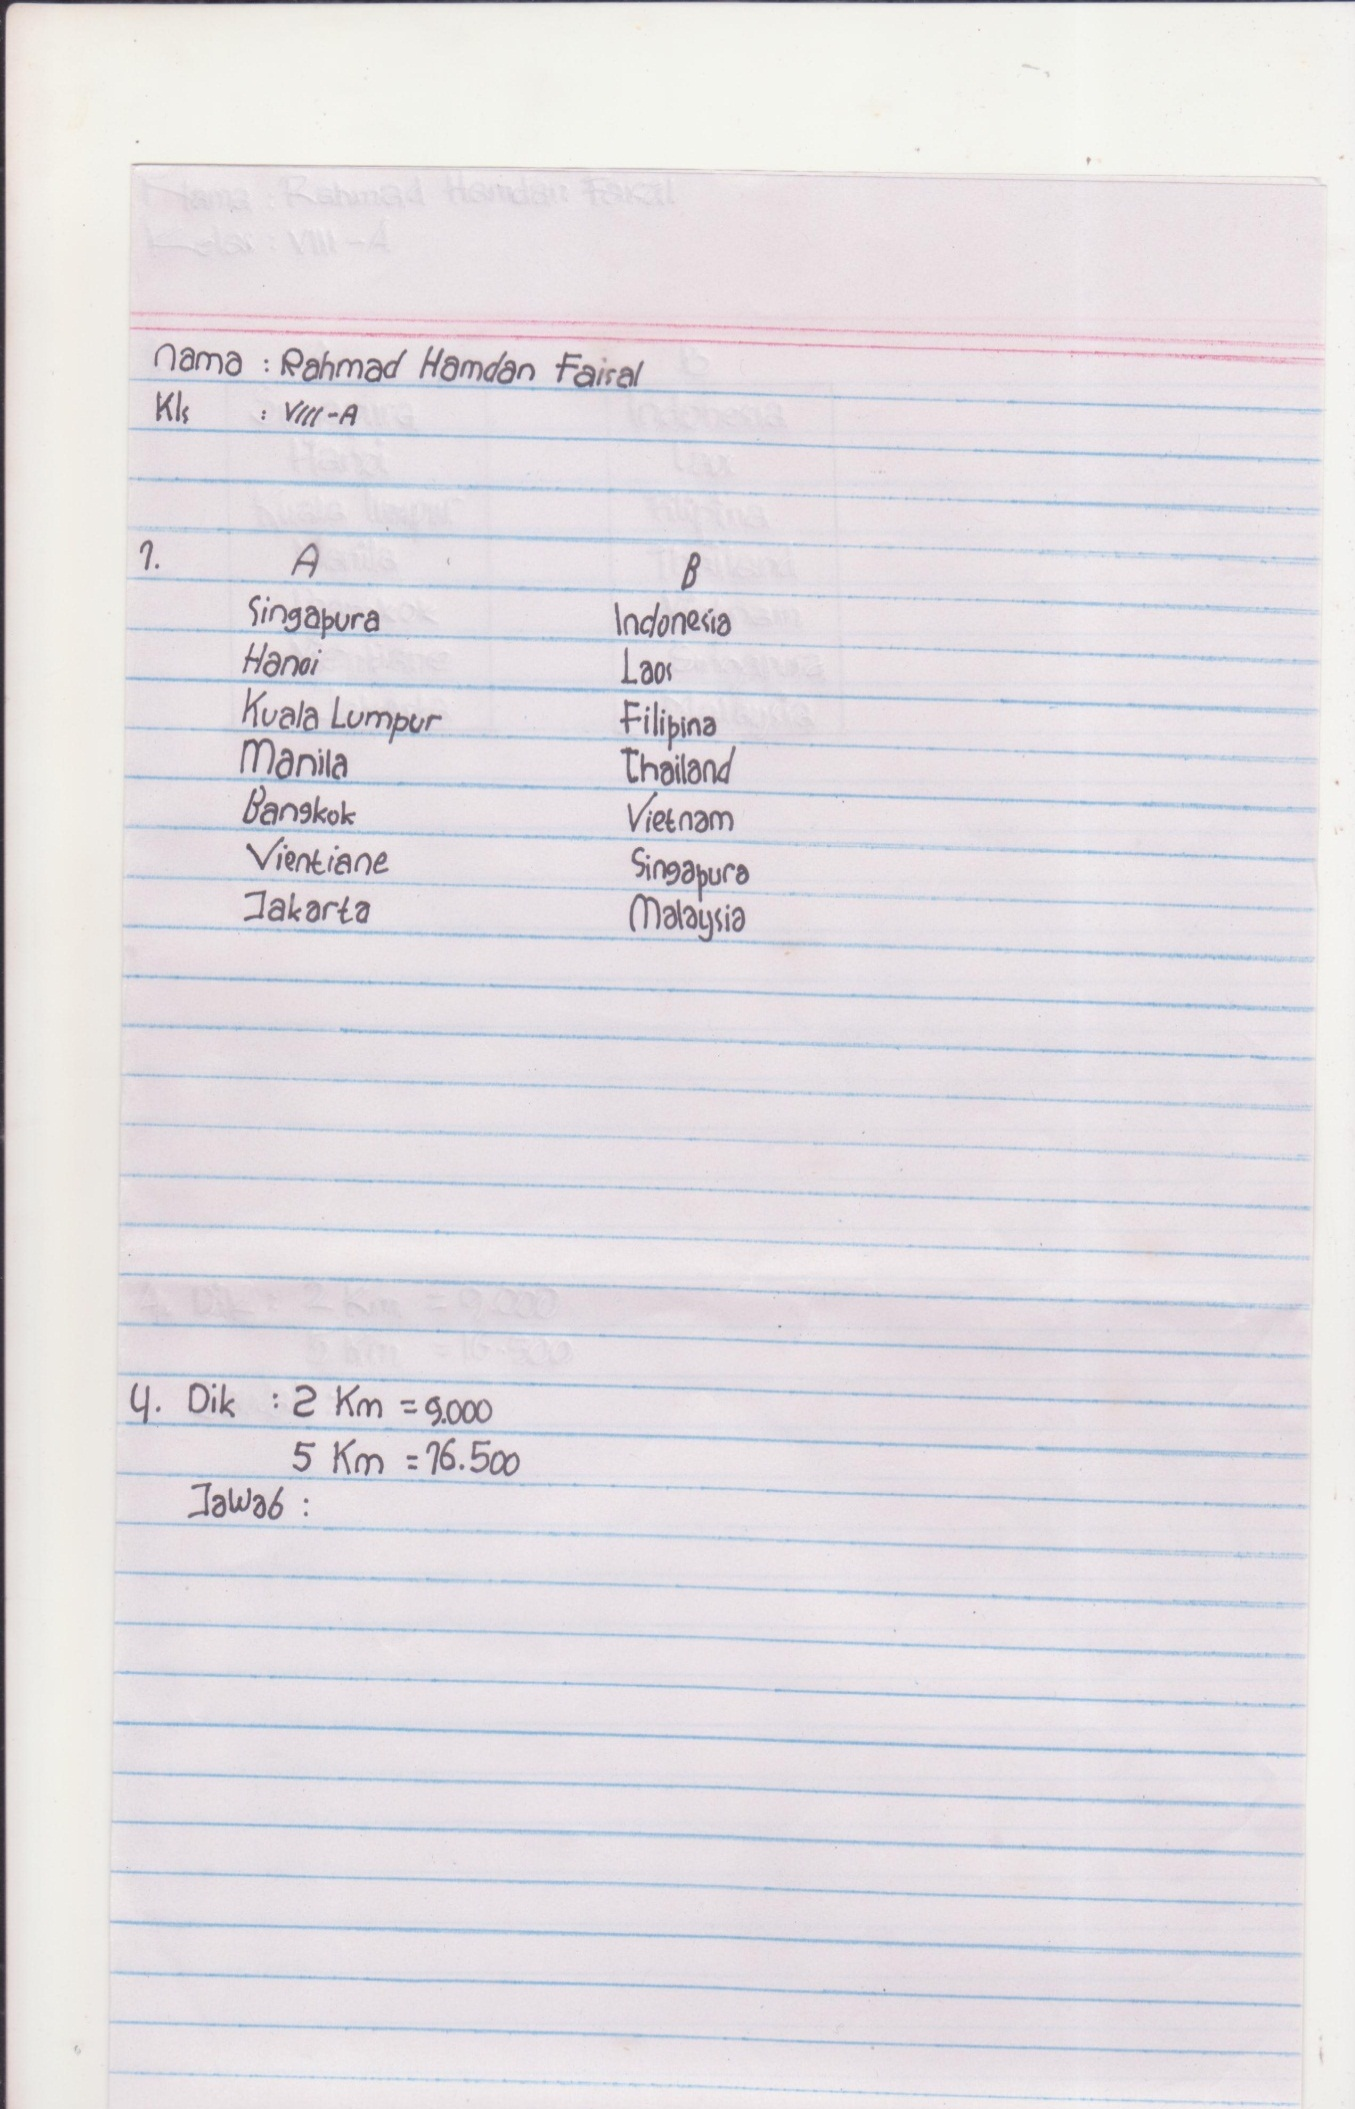 Nama : Rahmad Hamdan Faisal
Kls : VIII-A
1. A B
Singapura Indonesia
Hanoi Laos
Kuala Lumpur Filipina
Manila Thailand
Bangkok Vietnam
Vientiane Singapura
Jakarta Malaysia
4. Dik : 2 Km = 9.000
5 Km = 16.500
Jawab :